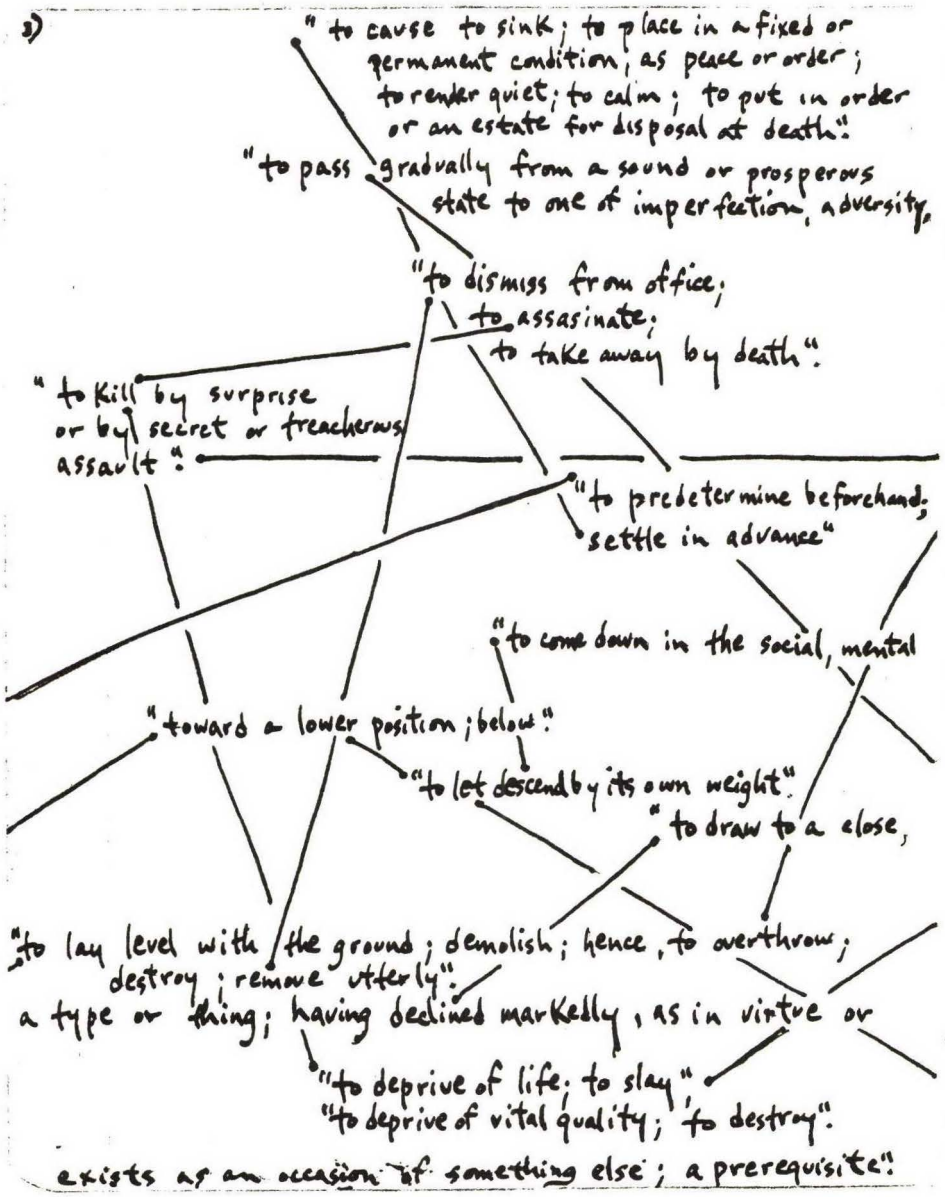 3)
" to cause to sink; to place in a fixed or
permanent condition, as peace or order;
to render quiet; to calm; to put in order
or an estate for disposal at death".
"to pass gradually from a sound or prosperous
state to one of imperfection, adversity,
"to dismiss from office;
to assasinate;
to take away by death".
"to kill by surprise
or by secret or treacherous
assault".
"to predetermine beforehand;
settle in advance"
"to come down in the social, mental
"toward a lower position; below".
"to let descend by its own weight".
"to draw to a close,
"to lay level with the ground; demolish; hence, to overthrow;
destroy; remove utterly".
a type or thing; having declined markedly, as in virtue or
"to deprive of life; to slay"
"to deprive of vital quality; to destroy".
exists as an occasion of something else; a prerequisite".